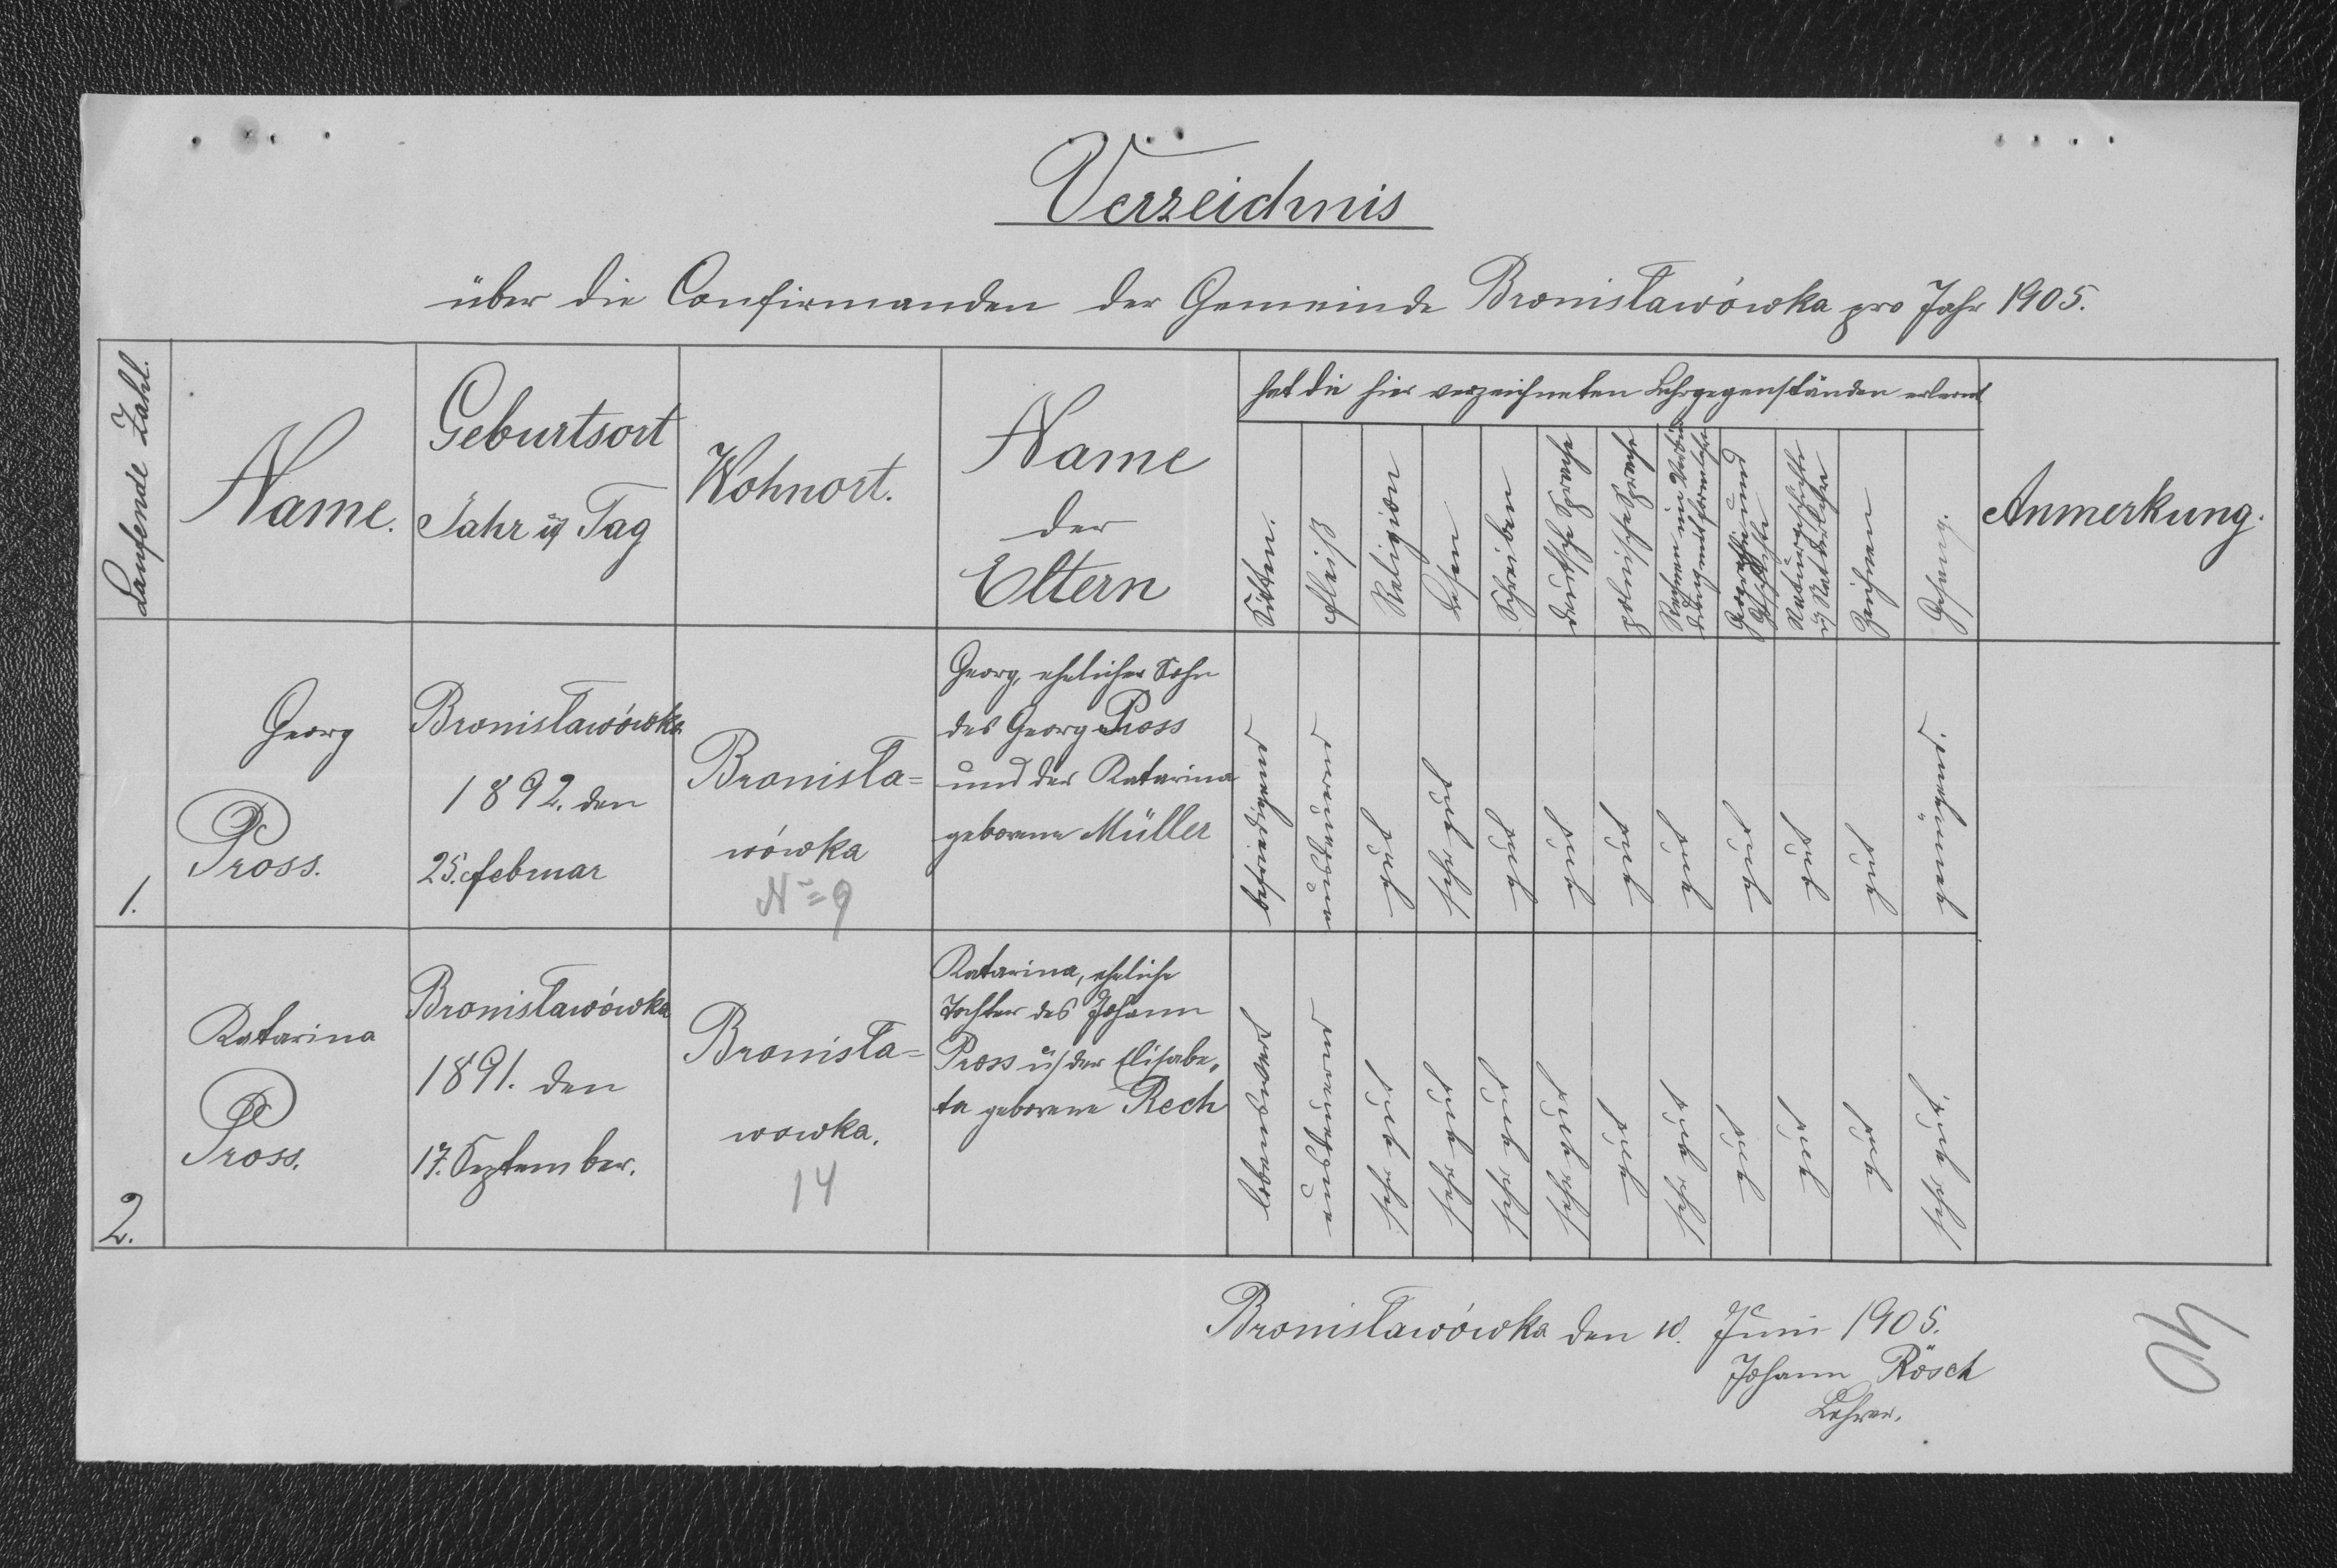 Verzeichnis
über die Confirmanden der Gemeinde Bronisławówka pro Jahr 1905.
Laufende Zahl.
Name.
Geburtsort
Jahr u Tag
Wohnort.
Name
der
Eltern
hat die hier verzeichneten Lehrgegenständen erlernt
Sitten.
Fleiß
Religion
Lesen
Schreiben
deutsche Sprache
polnische Sprache
Rechnen
Geografie und
Geschichte
Naturgeschichte
u Naturlehre
Zeichnen
Gesang.
Anmerkung.
1.
Georg
Pross.
Bronisławówka
1892. den
25. Februar
Bronisła=
wówka
N= 9
Georg, ehelicher Sohn
des Georg Pross
und der Katarina
geborene Müller
befriedigend
ausdauernd
gut
sehr gut
gut
gut
gut
gut
gut
gut
gut
genügend.
2.
Katarina
Pross.
Bronisławówka
1891. den
17. September.
Bronisła=
wowka.
14
Katarina, eheliche
Tochter des Johann
Pross u der Elisabe„
ta geborene Rech
lobenswert
ausdauernd
sehr gut
sehr gut
sehr gut
sehr gut
gut
sehr gut
gut
gut
gut
sehr gut.
Bronisławówka den 10. Juni 1905.
Johann Rösch
Lehrer.
40